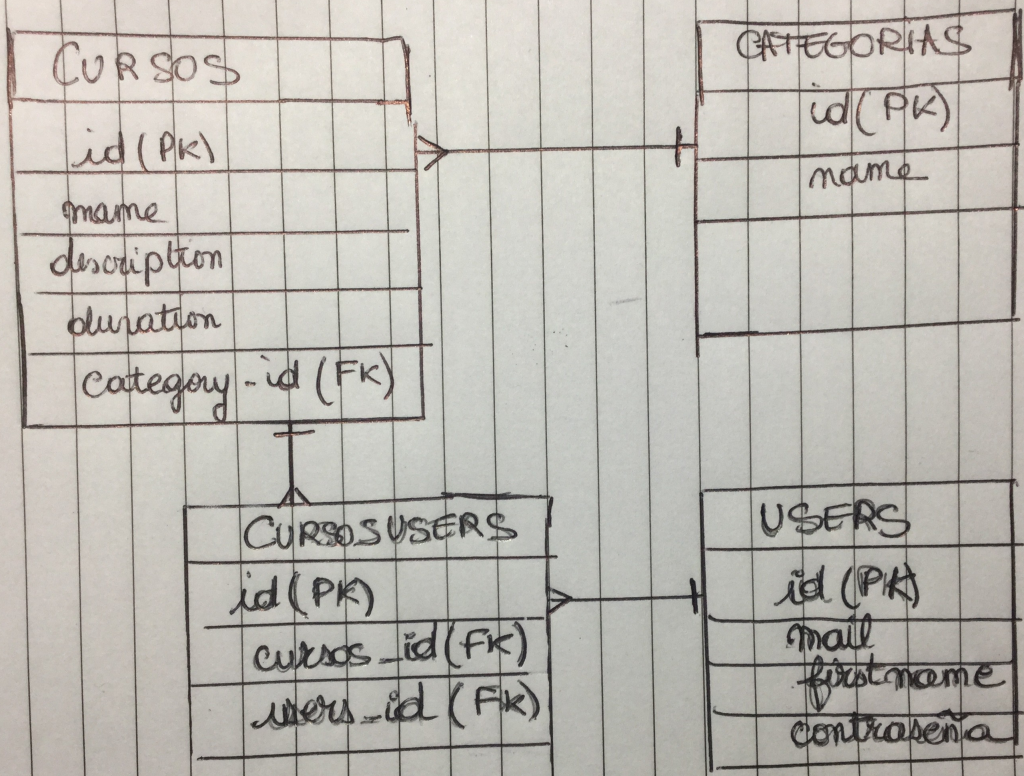 CURSOS
id (PK)
name
description
duration
category_id (FK)
CATEGORIAS
id (PK)
name
CURSOSUSERS
id (PK)
cursos_id (FK)
users_id (FK)
USERS
id (PK)
mail
firstname
contraseña